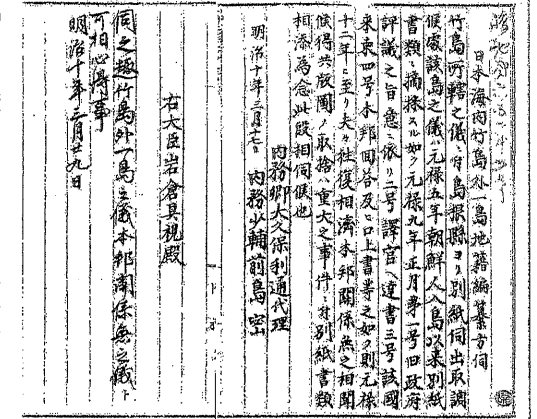 日本海内竹島外一島地籍編纂方伺
竹島所轄之儀ニ付島根縣ヨリ別紙伺出取調
候處該島之儀ハ元禄五年朝鮮人入島以来別紙
書類ニ摘採スル如ク元禄九年正月第一号旧政府
評議之旨意ニ依リ二号譯官ヘ達書三号該國
来柬四号本邦回答及ヒ口上書等之如ク則元禄
十二年ニ至リ夫々往復相濟本邦關係無之相聞
候得共版圖ノ取捨ハ重大之事件ニ付別紙書類
相添為念此段相伺候也
明治十年三月十七日
内務卿大久保利通代理
内務少輔前島密
右大臣岩倉具視殿
伺之趣竹島外一島之儀本邦関係無之儀ト
可相心得事
明治十年三月廿九日